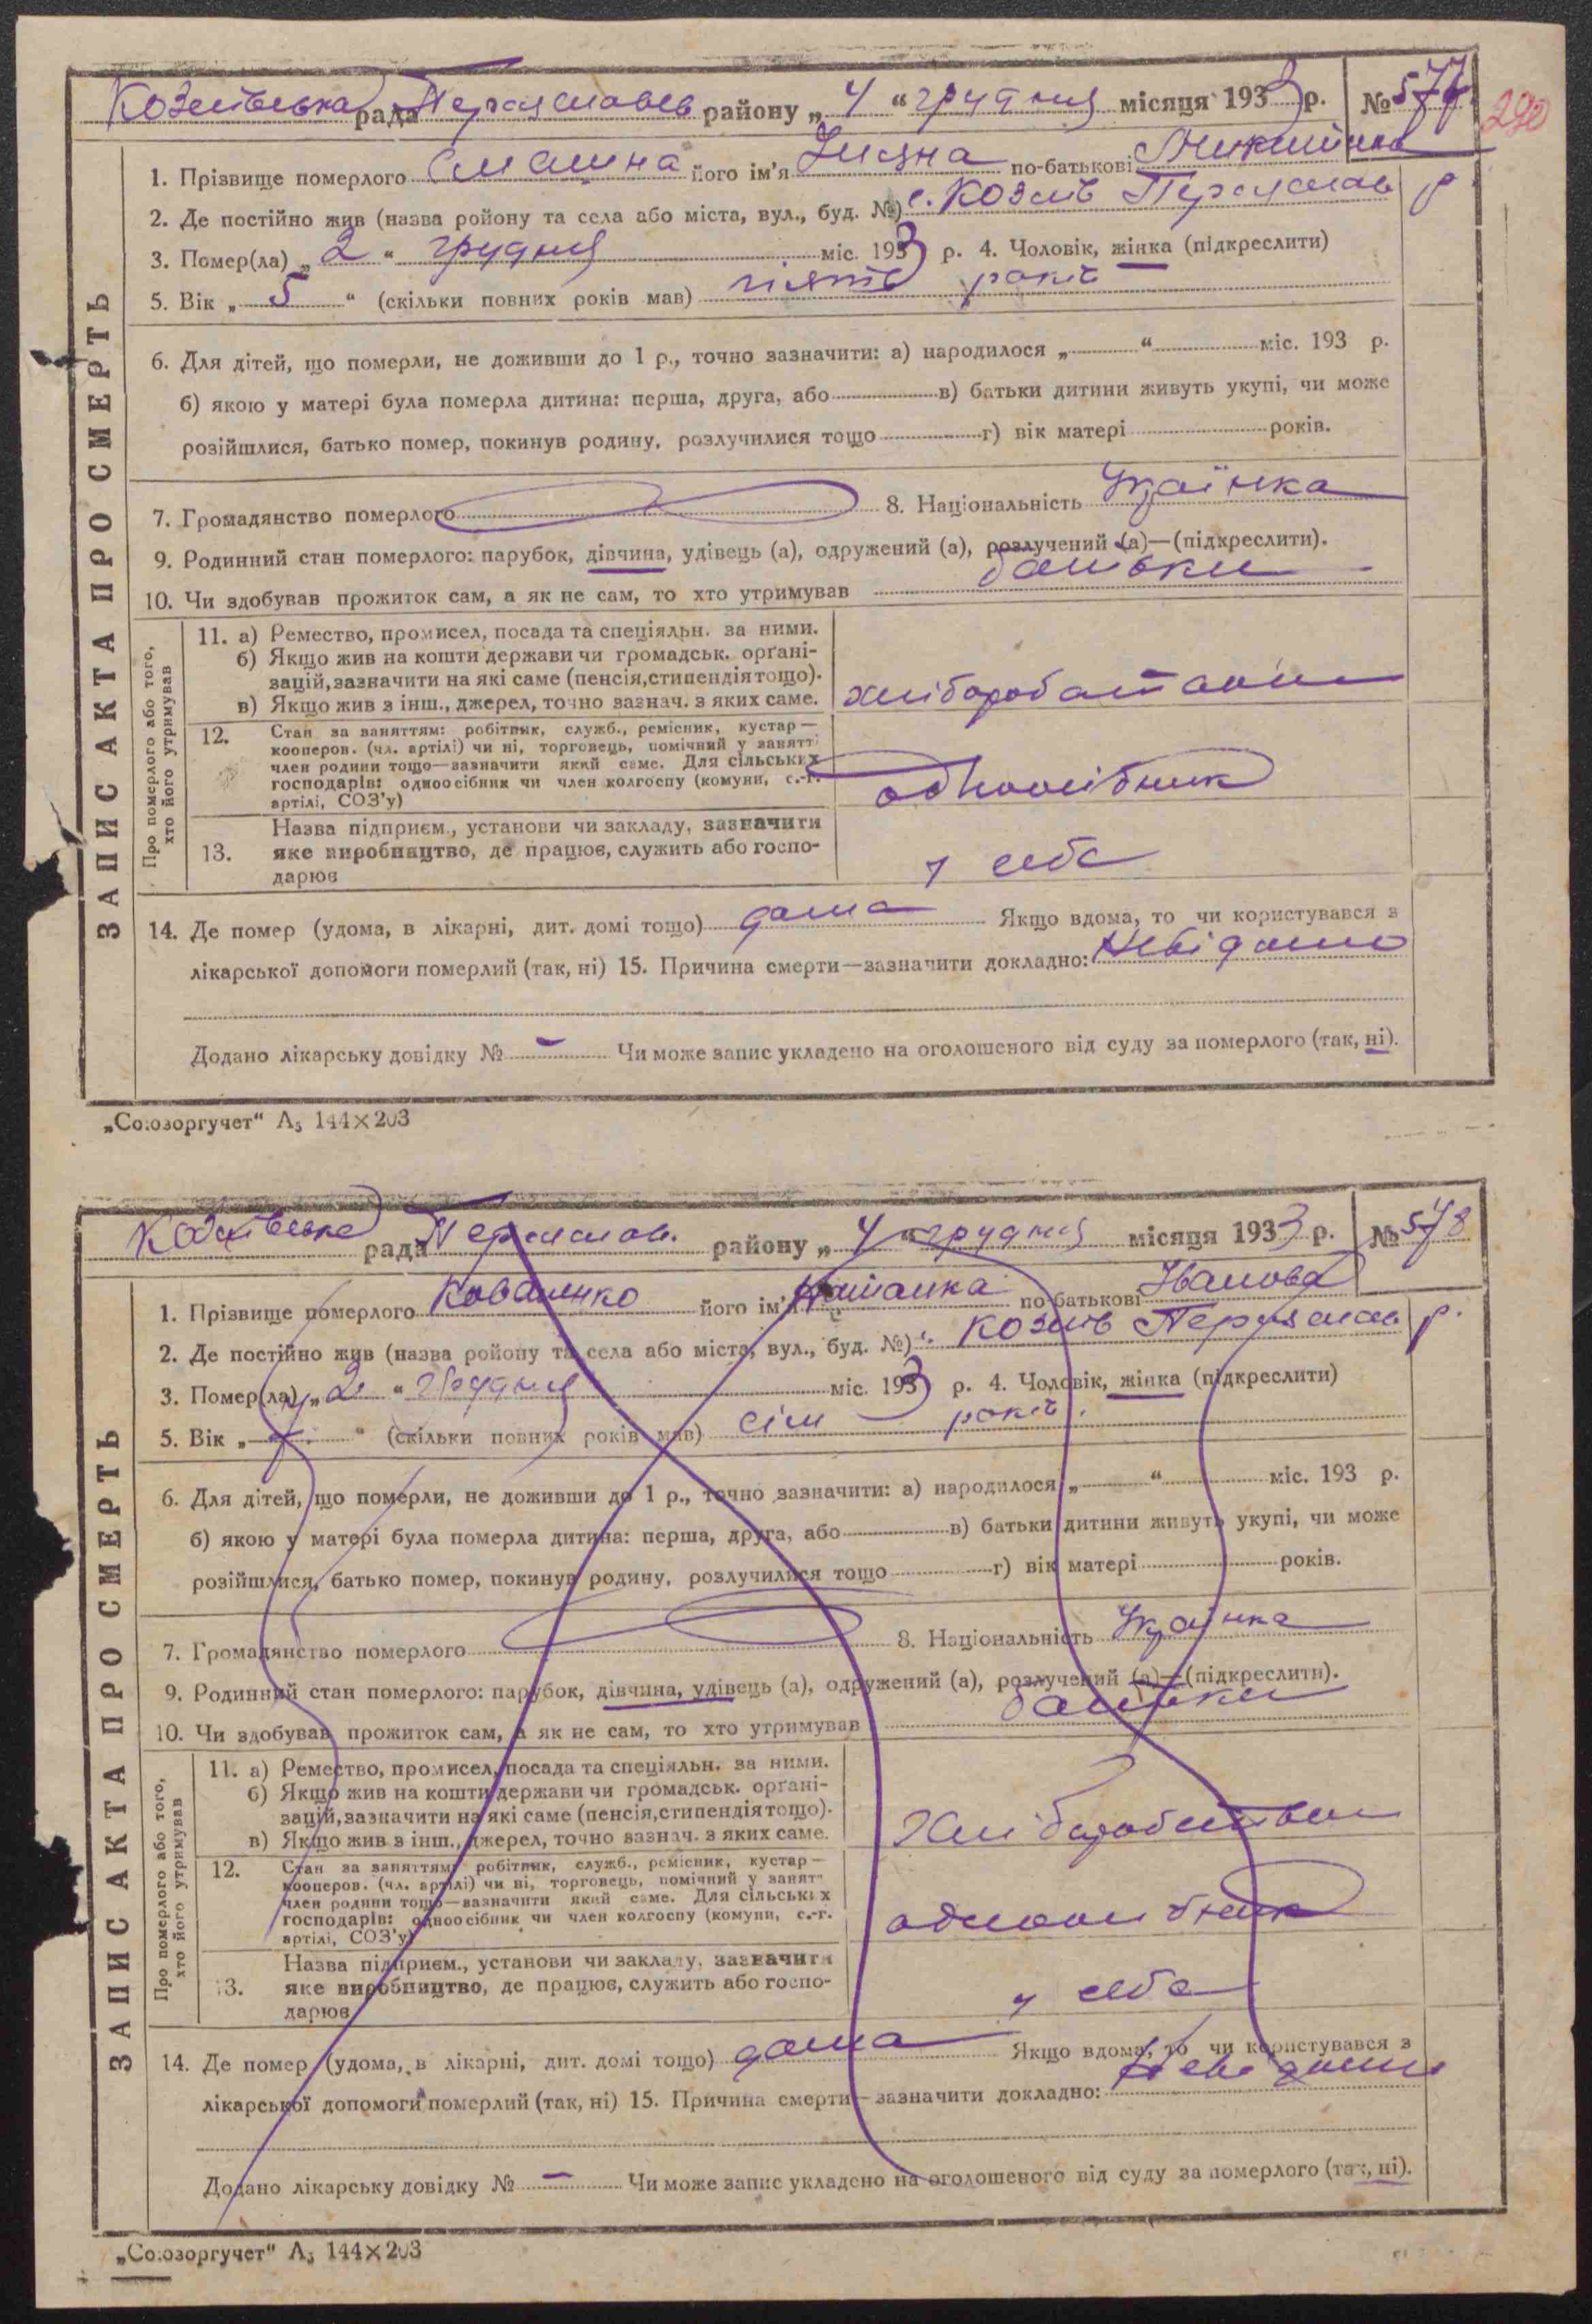 Козлівська рада Переяславсь району „ 4 “ грудня місяця 1933 р. № 577
290
1. Прізвище померлого його ім'я по-батькові
2. Де постійно жив (назва ройону та села або міста, вул., буд. №) с. Козлів Переяслав р.
3. Помер(ла) „ 2 “ грудня міс. 1933 р. 4. Чоловік, жінка (підкреслити)
5. Вік „ 5 “ (скільки повних років мав) п'ять років
6. Для дітей, що померли, не доживши до 1 р., точно зазначити: а) народилося „ “ міс. 193 р.
б) якою у матері була померла дитина: перша, друга, або в) батьки дитини живуть укупі, чи може
розійшлися, батько помер, покинув родину, розлучилися тощо г) вік матері років.
7. Громадянство померлого 8. Національність Українка
9. Родинний стан померлого: парубок, дівчина, удівець (а), одружений (а), розлучений (а)—(підкреслити).
10. Чи здобував прожиток сам, а як не сам, то хто утримував батьки
ЗАПИС АКТА ПРО СМЕРТЬ
Про померлого або того,
хто його утримував
11. а) Ремество, промисел, посада та спеціяльн. за ними.
б) Якщо жив на кошти держави чи громадськ. органі-
зацій, зазначити на які саме (пенсія, стипендія тощо).
в) Якщо жив з інш., джерел, точно зазнач. з яких саме.
12. Стан за заняттям: робітник, служб., ремісник, кустар—
кооперов. (чл. артілі) чи ні, торговець, помічний у занятт
член родини тощо—зазначити який саме. Для сільських
господарів: одноосібник чи член колгоспу (комуни, с.-г.
артілі, СОЗ'у)
одноосібник
13. Назва підприєм., установи чи закладу, зазначити
яке виробництво, де працює, служить або госпо-
дарює
у себе
14. Де помер (удома, в лікарні, дит. домі тощо) дома Якщо вдома, то чи користувався з
лікарської допомоги померлий (так, ні) 15. Причина смерти—зазначити докладно: Невідомо
Додано лікарську довідку № – Чи може запис укладено на оголошеного від суду за померлого (так, ні).
„Союзоргучет“ А5 144×203
Козлівська рада Переяслав. району „ 4 “ грудня місяця 1933 р. № 578
1. Прізвище померлого Коваленко його ім'я по-батькові Іванова
2. Де постійно жив (назва ройону та села або міста, вул., буд. №) с. Козлів Переяслав р.
3. Помер(ла) „ 2 “ грудня міс. 1933 р. 4. Чоловік, жінка (підкреслити)
5. Вік „ 7 “ (скільки повних років мав) сім років.
6. Для дітей, що померли, не доживши до 1 р., точно зазначити: а) народилося „ “ міс. 193 р.
б) якою у матері була померла дитина: перша, друга, або в) батьки дитини живуть укупі, чи може
розійшлися, батько помер, покинув родину, розлучилися тощо г) вік матері років.
7. Громадянство померлого 8. Національність Українка
9. Родинний стан померлого: парубок, дівчина, удівець (а), одружений (а), розлучений (а)—(підкреслити).
10. Чи здобував прожиток сам, а як не сам, то хто утримував батьки
ЗАПИС АКТА ПРО СМЕРТЬ
Про померлого або того,
хто його утримував
11. а) Ремество, промисел, посада та спеціяльн. за ними.
б) Якщо жив на кошти держави чи громадськ. органі-
зацій, зазначити на які саме (пенсія, стипендія тощо).
в) Якщо жив з інш., джерел, точно зазнач. з яких саме.
12. Стан за заняттям: робітник, служб., ремісник, кустар—
кооперов. (чл. артілі) чи ні, торговець, помічний у занятт
член родини тощо—зазначити який саме. Для сільських
господарів: одноосібник чи член колгоспу (комуни, с.-г.
артілі, СОЗ'у)
одноосібник
13. Назва підприєм., установи чи закладу, зазначити
яке виробництво, де працює, служить або госпо-
дарює
у себе
14. Де помер (удома, в лікарні, дит. домі тощо) дома Якщо вдома, то чи користувався з
лікарської допомоги померлий (так, ні) 15. Причина смерти—зазначити докладно: Невідомо
Додано лікарську довідку № – Чи може запис укладено на оголошеного від суду за померлого (так, ні).
„Союзоргучет“ А5 144×203